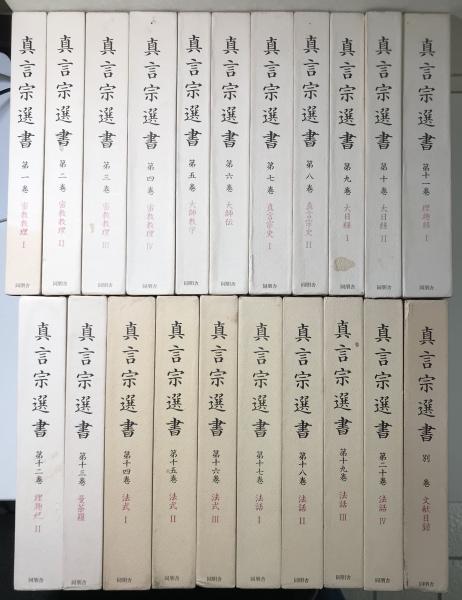 真言宗選書 第一巻 密教教理 I 同朋舎
真言宗選書 第二巻 密教教理 II 同朋舎
真言宗選書 第三巻 密教教理 III 同朋舎
真言宗選書 第四巻 密教教理 IV 同朋舎
真言宗選書 第五巻 大師教学 同朋舎
真言宗選書 第六巻 大師伝 同朋舎
真言宗選書 第七巻 真言宗史 I 同朋舎
真言宗選書 第八巻 真言宗史 II 同朋舎
真言宗選書 第九巻 大日経 I 同朋舎
真言宗選書 第十巻 大日経 II 同朋舎
真言宗選書 第十一巻 理趣経 I 同朋舎
真言宗選書 第十二巻 理趣経 II 同朋舎
真言宗選書 第十三巻 曼荼羅 同朋舎
真言宗選書 第十四巻 法式 I 同朋舎
真言宗選書 第十五巻 法式 II 同朋舎
真言宗選書 第十六巻 法式 III 同朋舎
真言宗選書 第十七巻 法話 I 同朋舎
真言宗選書 第十八巻 法話 II 同朋舎
真言宗選書 第十九巻 法話 III 同朋舎
真言宗選書 第二十巻 法話 IV 同朋舎
真言宗選書 別巻 文献目録 同朋舎